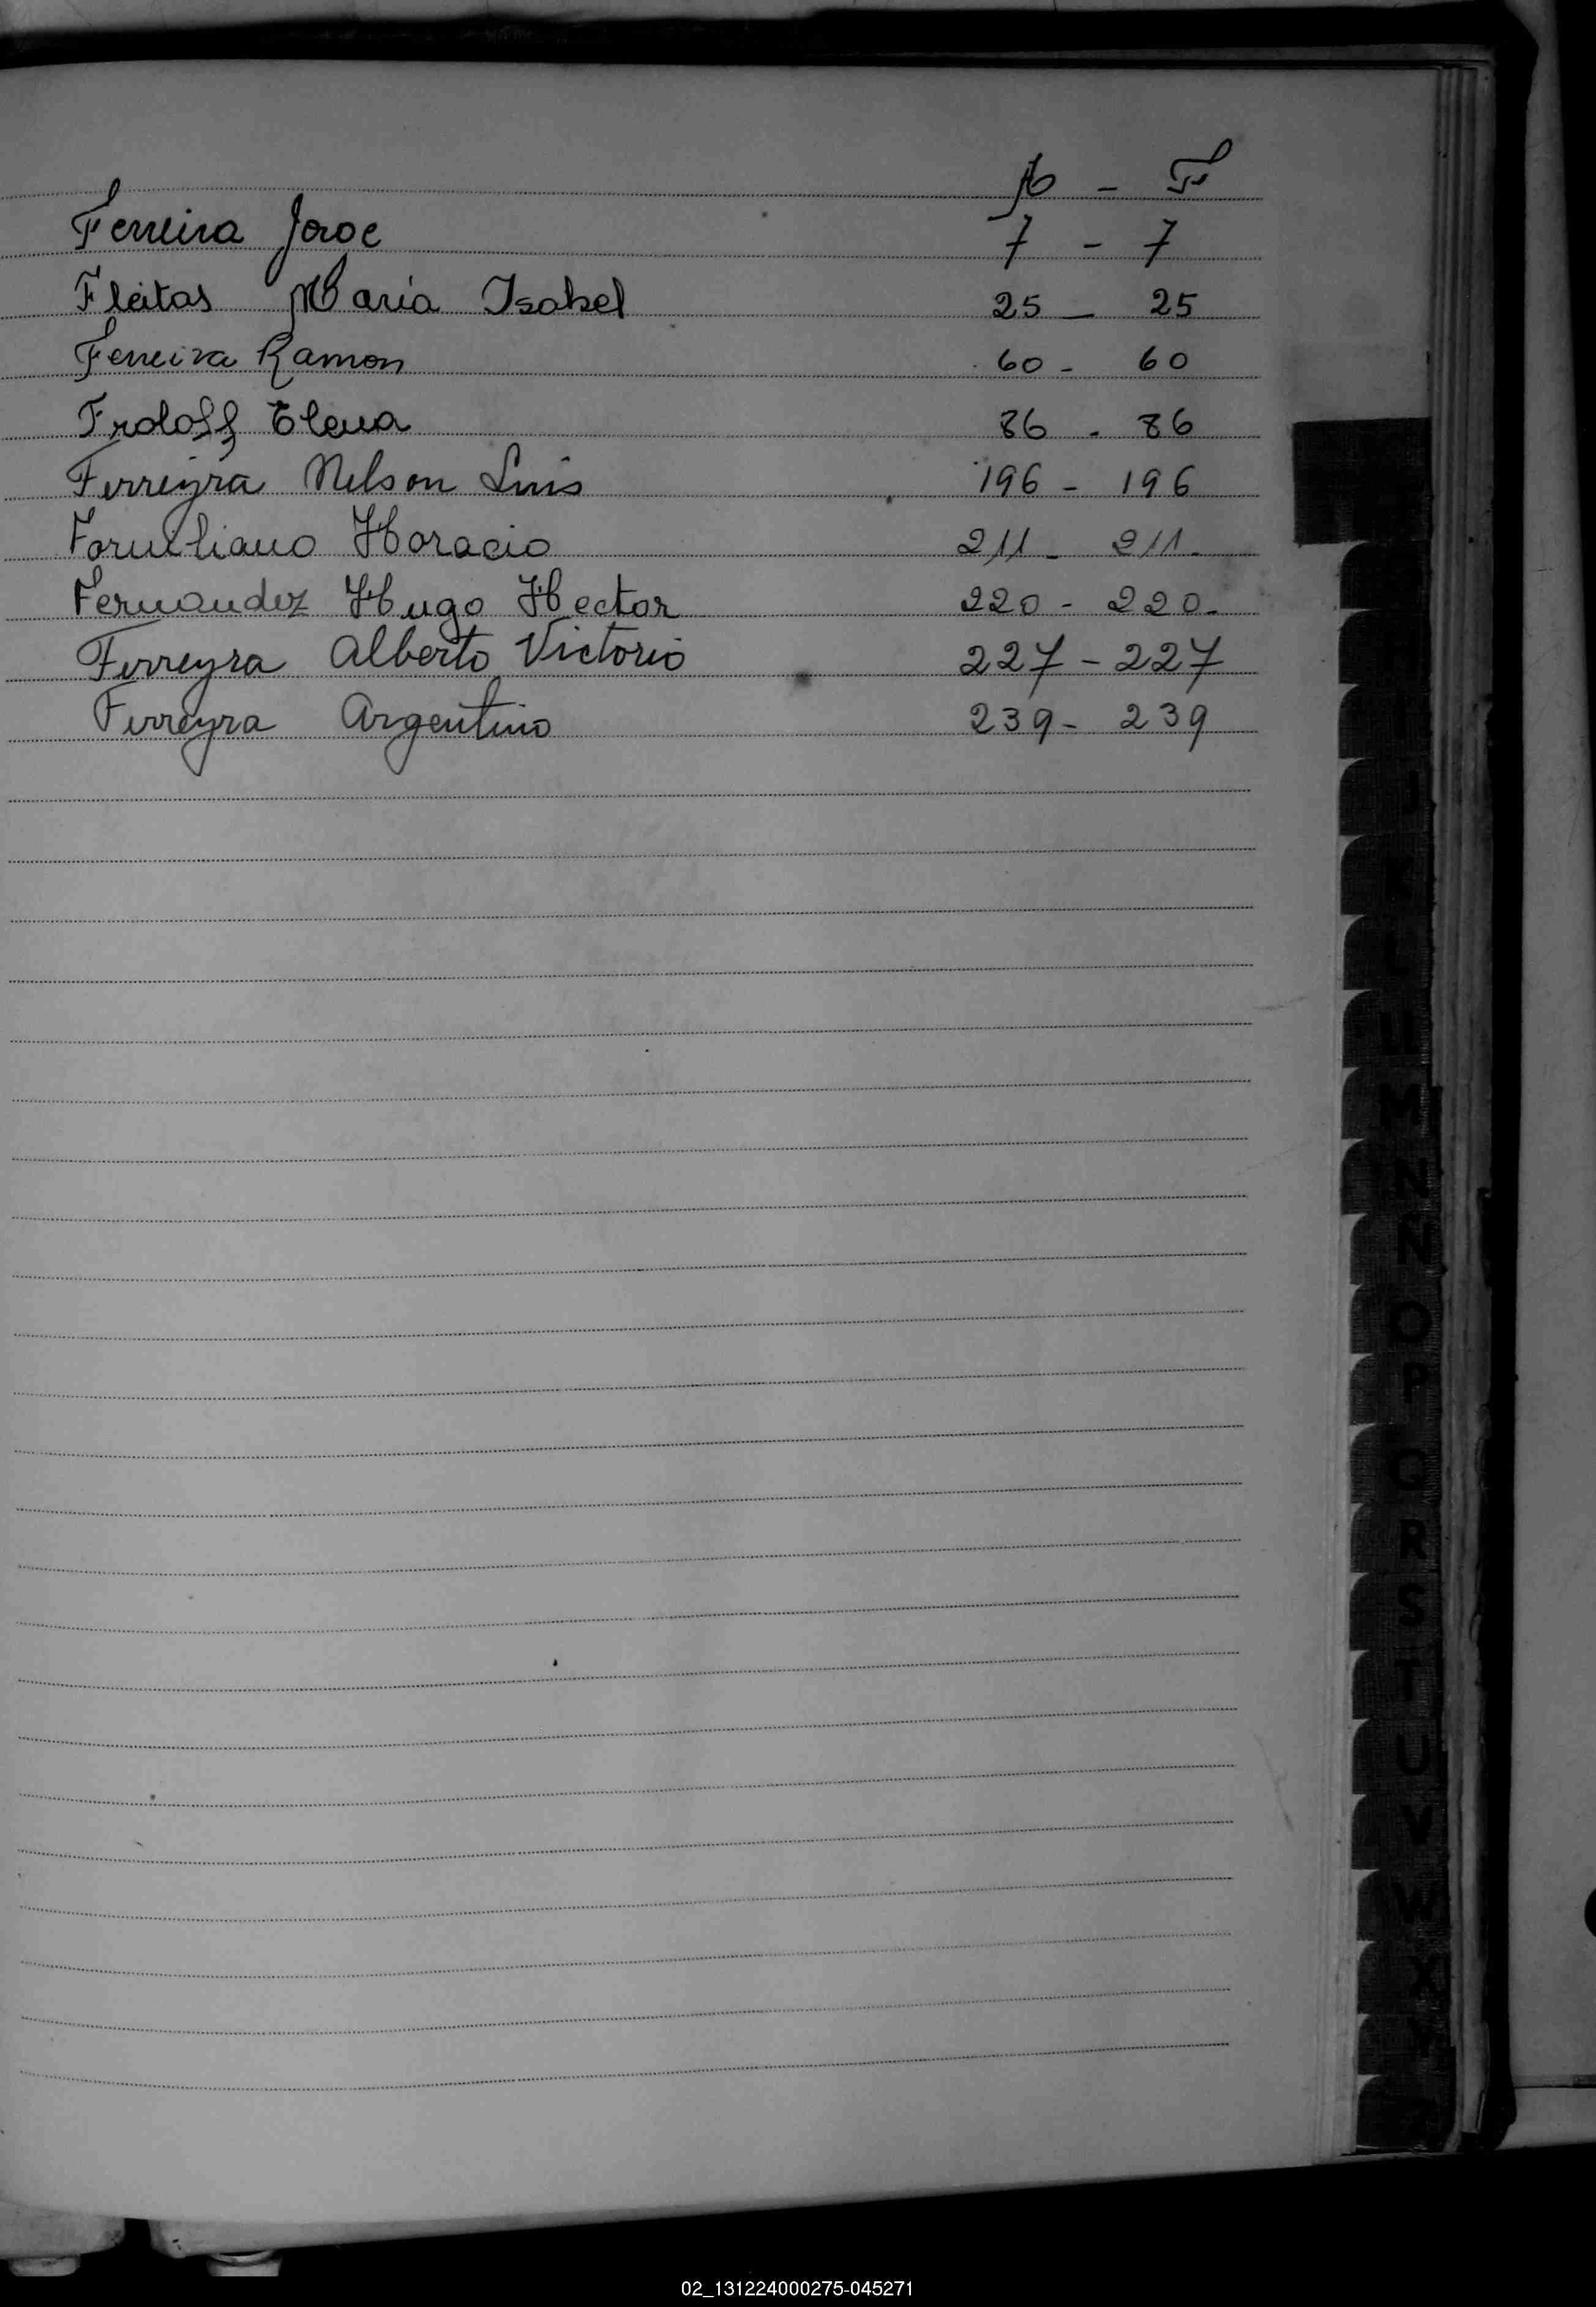 A - F
Ferreira Jorge 7 - 7
Fleitas Maria Isabel 25 - 25
Ferreira Ramon 60 - 60
Froloff Elena 86 - 86
Ferreyra Nelson Luis 196 - 196
Horacio 211 - 211.
Fernandez Hugo Hector 220 - 220.
Ferreyra Alberto Victorio 227 - 227
Ferreyra Argentino 239 - 239
I
K
L
M
N
Ñ
O
P
Q
R
S
T
U
V
W
X
02_131224000275-045271